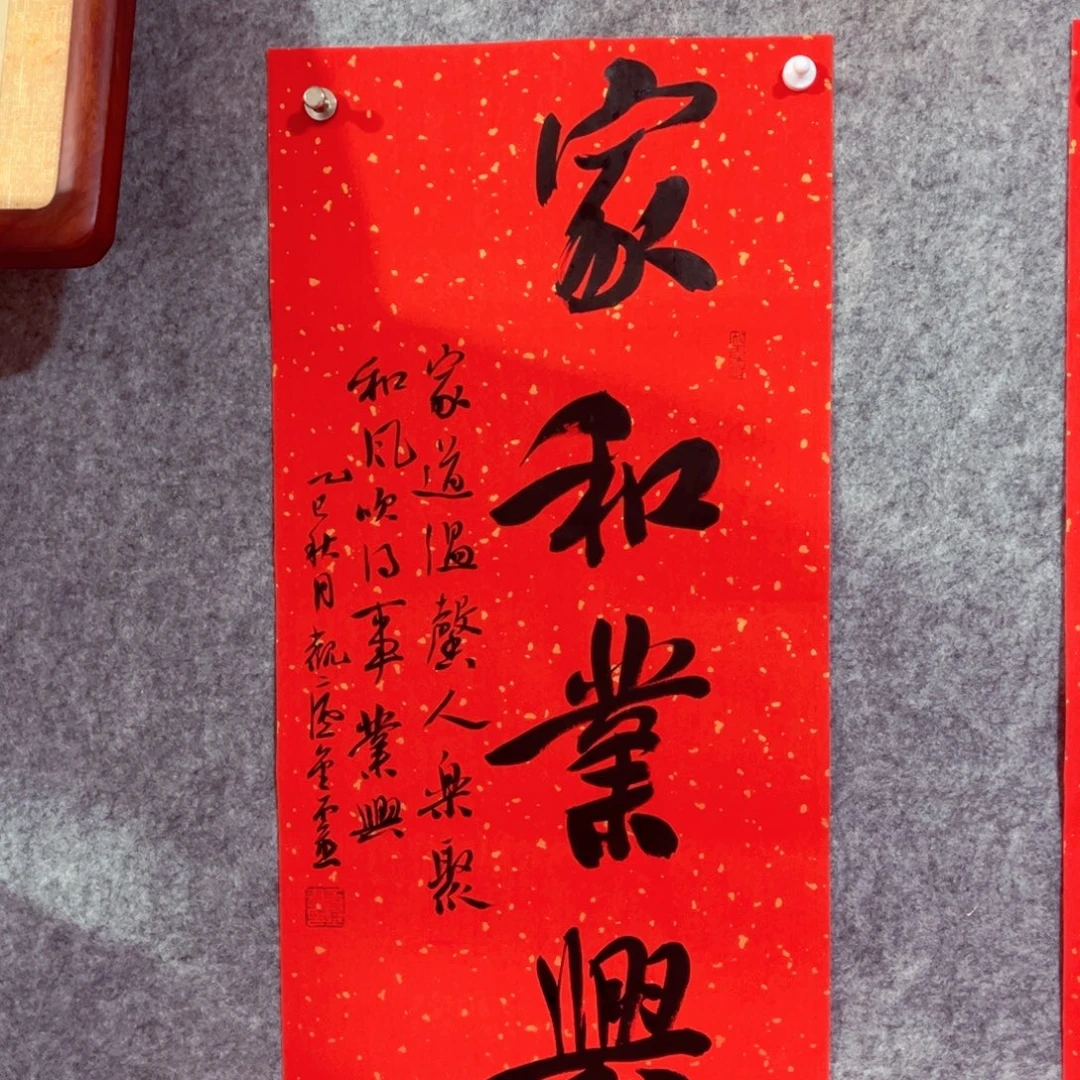 家和業興
家道温馨人樂聚
和風吹得事業興
乙巳秋月